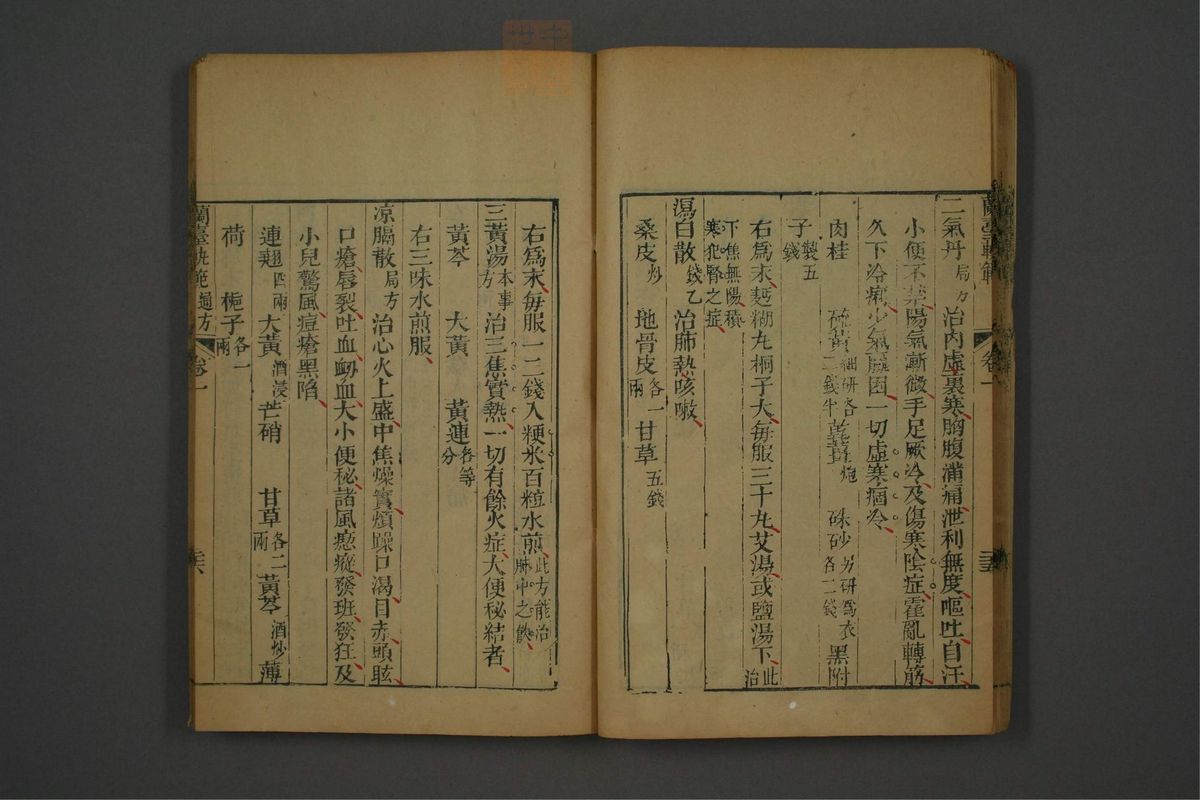 蘭臺軌範 卷一 三十五
二氣丹局方 治內虛裏寒胸腹滿痛泄利無度嘔吐自汗
小便不禁陽氣漸微手足厥冷及傷寒陰症霍亂轉筋
久下冷痢少氣羸困一切虛寒痼冷
肉桂 硫黃細研各二錢半 乾薑炮 硃砂另研爲衣各二錢 黑附
子製五錢
右爲末麪糊丸桐子大每服三十丸艾湯或鹽湯下此治
下焦無陽積寒犯腎之症
瀉白散錢乙 治肺熱咳嗽
桑皮炒 地骨皮各一兩 甘草五錢
右爲末每服一二錢入粳米百粒水煎此方能治肺中之飲
三黃湯本事方 治三焦實熱一切有餘火症大便秘結者
黃芩 大黃 黃連各等分
右三味水煎服
凉膈散局方 治心火上盛中焦燥實煩躁口渴目赤頭眩
口瘡唇裂吐血衂血大小便秘諸風瘛瘲發班發狂及
小兒驚風痘瘡黑陷
連翹四兩 大黃酒浸 芒硝 甘草各二兩 黃芩酒炒 薄
荷 梔子各一兩
蘭臺軌範 通方 卷一 三十六